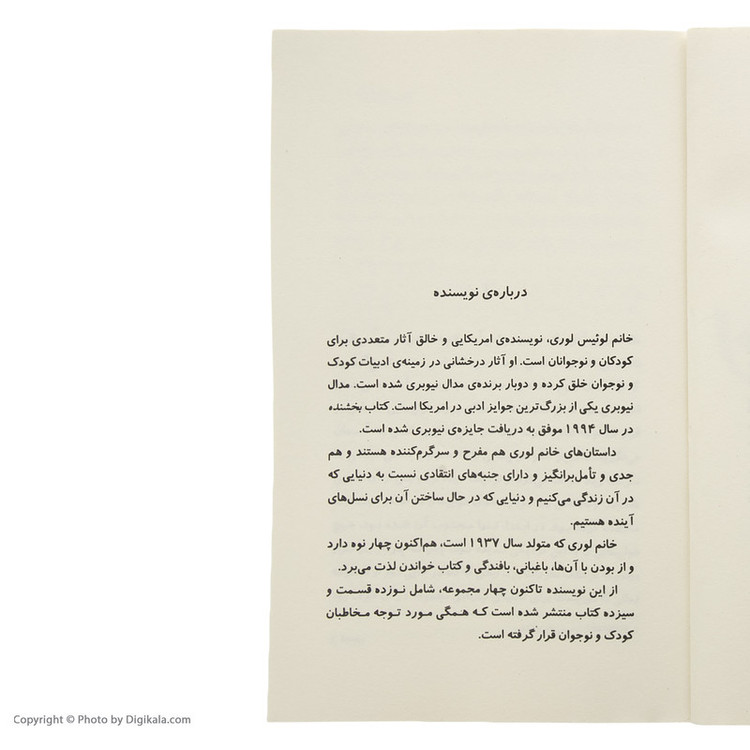 درباره‌ی نویسنده
خانم لوئیس لوری، نویسنده‌ی امریکایی و خالق آثار متعددی برای
کودکان و نوجوانان است. او آثار درخشانی در زمینه‌ی ادبیات کودک
و نوجوان خلق کرده و دوبار برنده‌ی مدال نیوبری شده است. مدال
نیوبری یکی از بزرگ‌ترین جوایز ادبی در امریکا است. کتاب بخشنده
در سال ۱۹۹۴ موفق به دریافت جایزه‌ی نیوبری شده است.
داستان‌های خانم لوری هم مفرح و سرگرم‌کننده هستند و هم
جدی و تأمل‌برانگیز و دارای جنبه‌های انتقادی نسبت به دنیایی که
در آن زندگی می‌کنیم و دنیایی که در حال ساختن آن برای نسل‌های
آینده هستیم.
خانم لوری که متولد سال ۱۹۳۷ است، هم‌اکنون چهار نوه دارد
و از بودن با آن‌ها، باغبانی، بافندگی و کتاب خواندن لذت می‌برد.
از این نویسنده تاکنون چهار مجموعه، شامل نوزده قسمت و
سیزده کتاب منتشر شده است که همگی مورد توجه مخاطبان
کودک و نوجوان قرار گرفته است.
Copyright © Photo by Digikala.com